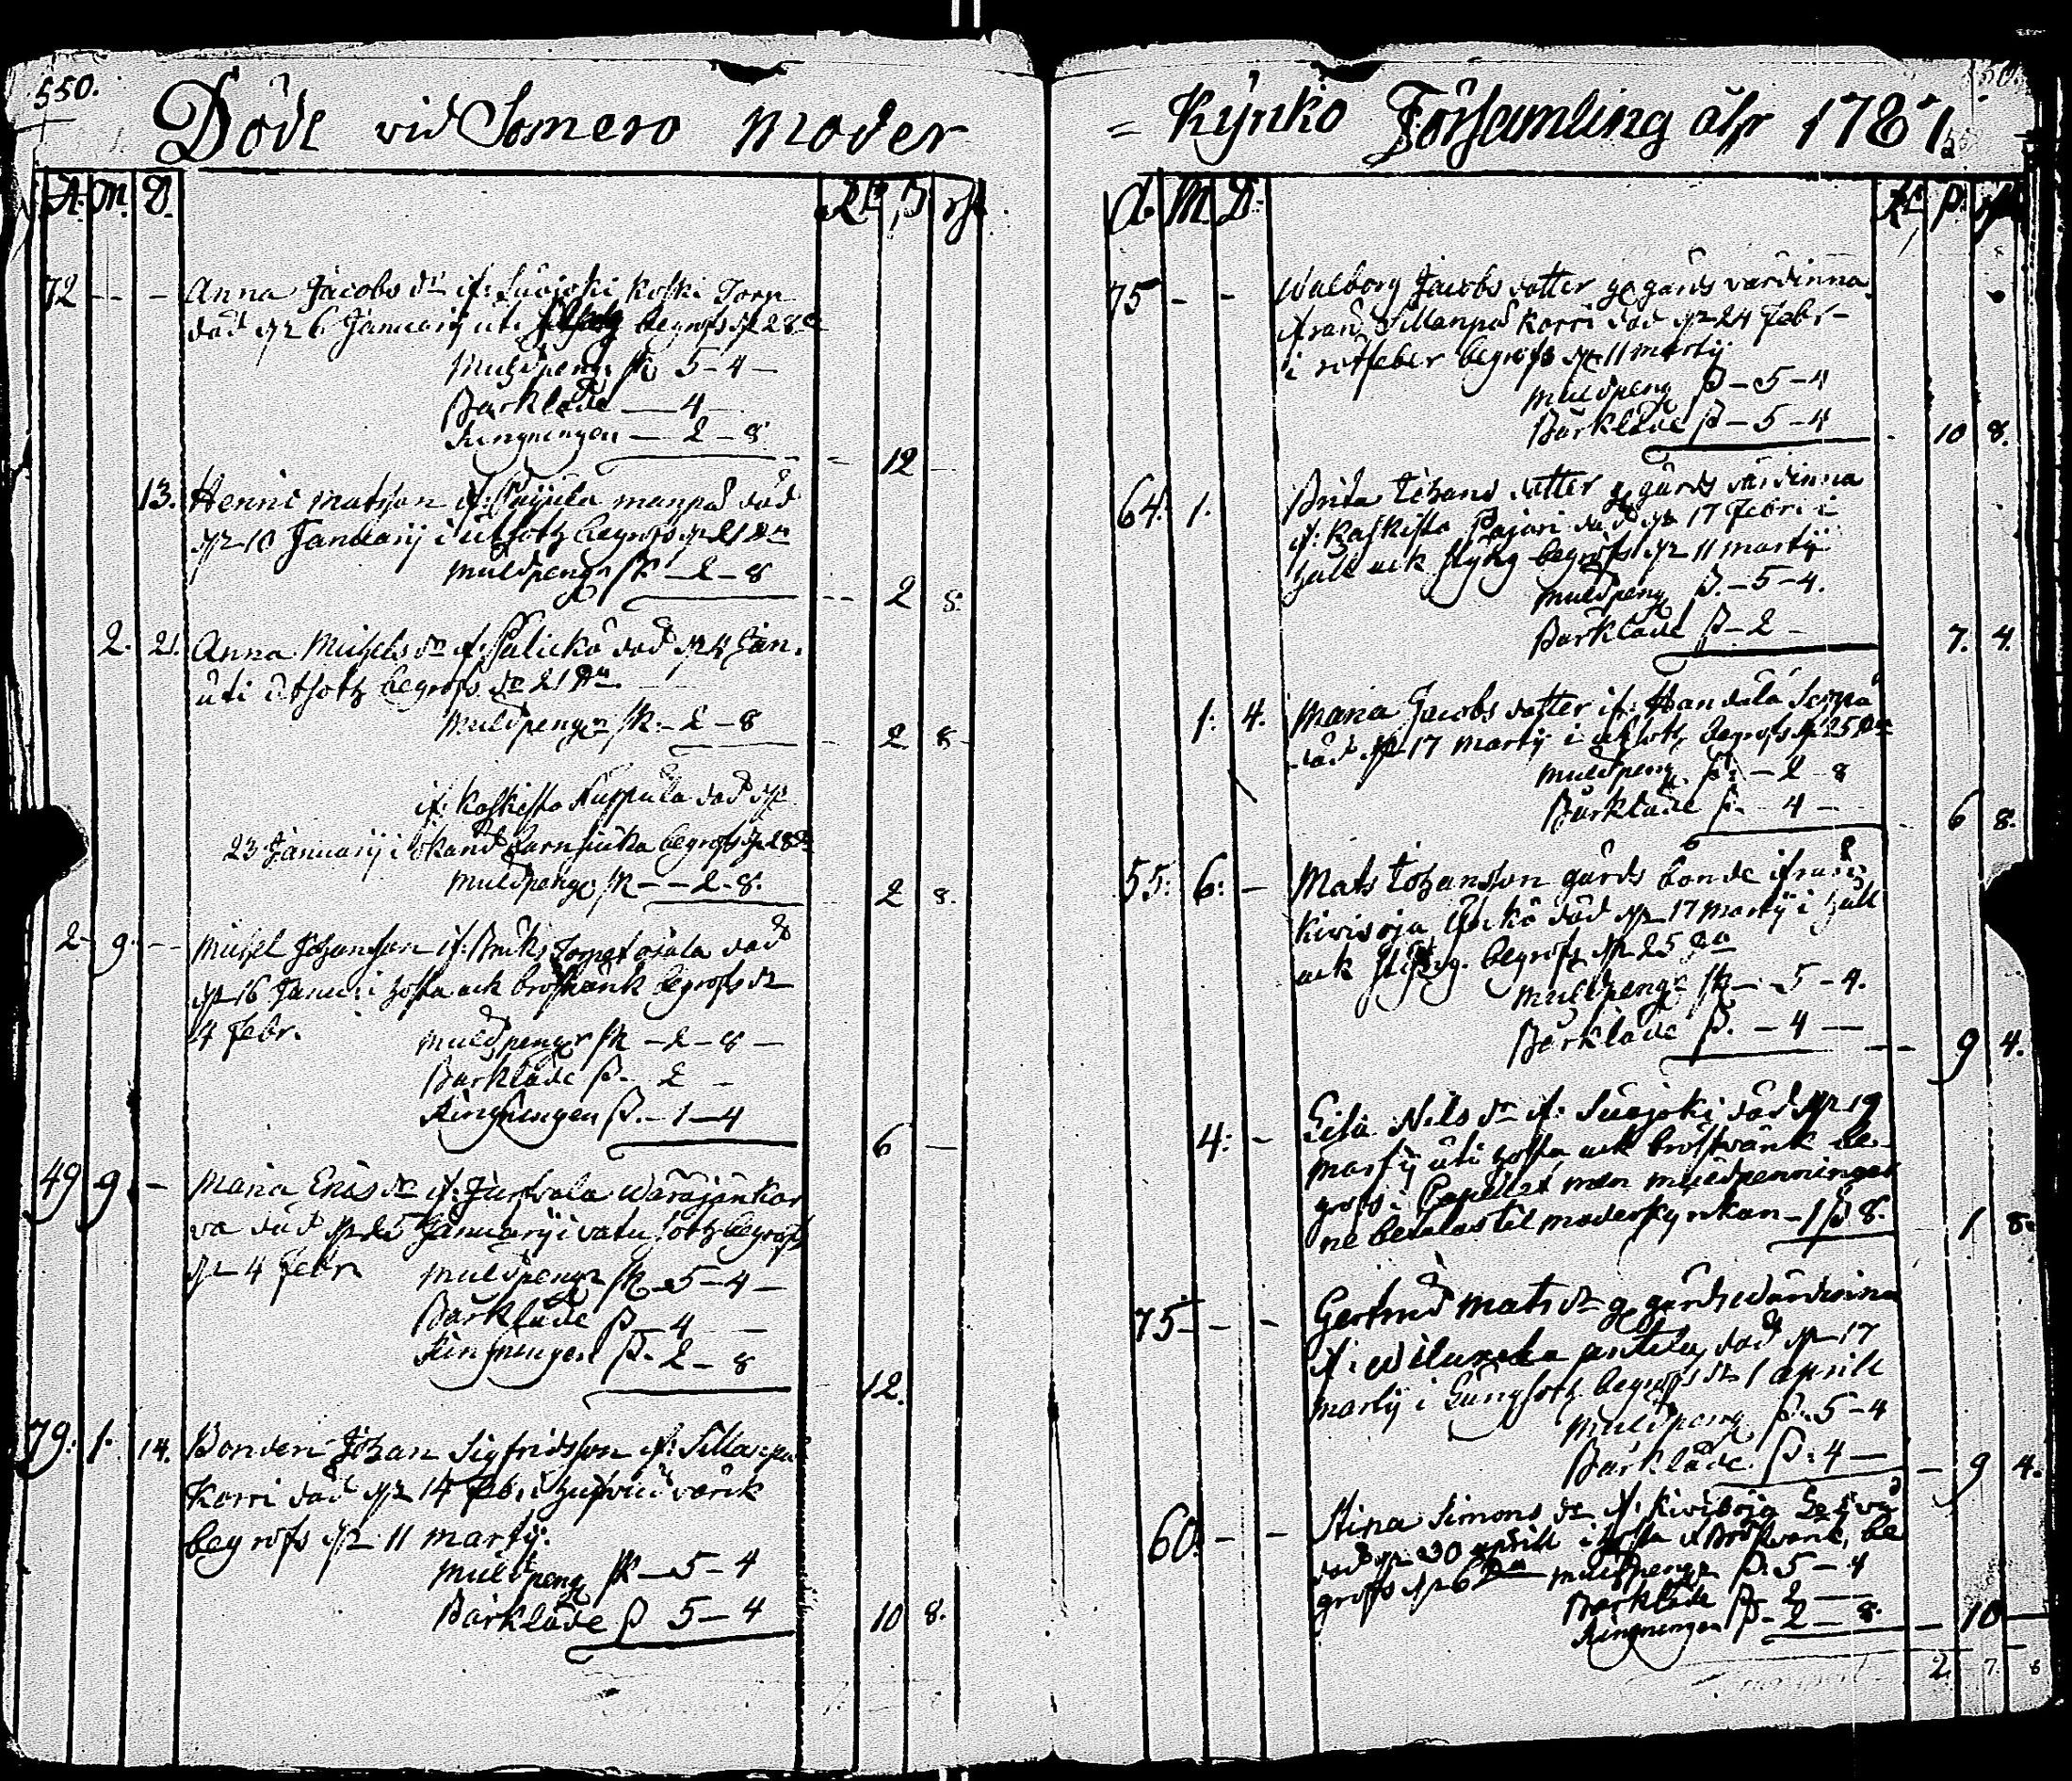 550.
Döde vid Somero moder
= Kyrko Församling åhr 1781.
A. M. D. Rd ß. rst.
72 - - - Anna Jacobs dr if: Suojoki Koski Torp
död dr 6 Januarij uti begrofs dr 28 de
Muldpengr sk 5 - 4 -
Bårkläde - 4 -
Ringningen - 2 - 8
12 -
13. Henric Matsson if: manpå död
dr 10 Januarij i utsoth begrofs dr 21 de
Muldpengr sk - 2 - 8
2 8.
2. 21. Anna Michels dr if: Palickå död dr 4 Jan.
uti utsoth begrofs dr 21 de.
Muldpengr sk. - 2 - 8
2 8 -
if: Koskisto Nuppula död dr
23 Januarij i okänd barnsiuka begrofs dr 28 de
Muldpengr sk - - 2 - 8.
2 8.
2 - 9 - - Michel Johansson if: Bruks Torpet ojala död
dr 16 Januari i hosta ock bröstvänk begrofs dr
4 Febr.
Muldpengr sk - 2 - 8 -
Bårkläde ß. 2 -
Ringningen ß. - 1 - 4
6 -
49 9 - Maria Erics dr if: Jurvala
va död dr 25 Januarij i vatusoth begrofs
dr 4 Febr.
Muldpengr sk - 5 - 4 -
Bårkläde ß - 4 -
Ringningen ß. 2 - 8
12.
79. 1. 14. Bonden Johan Sigfridsson if: Sillanpää
Korri död dr 14 Feb. i hufvud värck
begrofs dr 11 Martij.
Muldpeng sk - 5 - 4
Bårkläde ß 5 - 4
10 8.
A. M. D. Rd ß.
75 - - Walborg Jacobs dotter gl gårds värdinna
ifrån Sillanpää Korri död dr 24 Febr -
i rötfeber begrofs dr 11 Martij
Muldpeng ß - 5 - 4
Bårkläde ß - 5 - 4
10 8.
64. 1. Brita Johans dotter gl gårds värdinna
if: Kaskisto Pajari död dr 17 Febri i
håll ock styng begrofs dr 11 Martij
Muldpeng ß. - 5 - 4.
Bårkläde ß - 2 -
7. 4.
1. 4. Maria Jacobs dotter if: Handala Seppä
död dr 17 Martij i utsoth begrofs dr 25 de
Muldpeng ß: - 2 8
Bårkläde ß. - 4 -
6 8.
55. 6: - Mats Johansson gårds bonde ifrån
Kivisoja död dr 17 Martij i håll
ock styng. begrofs dr 25 de
Muldpengr sk - 5 - 4.
Bårkläde ß. - 4 -
9 4.
4: - Nils dr if: Suojoki död dr 19
Martij uti hosta ock bröstvänk be-
grofs i Capellet men muldpenningar
ne betalas til moderkyrkan - 1 ß 8.
1 8.
75 - - - Gertrud Mats dr gl gårds värdinna
if: antila död dr 17
Martij i Lungsoth begrofs dr 1 aprill
Muldpeng ß. 5 - 4
Bårkläde. ß: 4 -
9 4.
60. - - Stina Simons dr if: Kivisoja
död dr 30 aprill i hosta o bröstvank, be
grofs dr 6 Muldpengr ß. 5 - 4
Bårkläde ß - 2 -
Ringningen ß - 2 - 8.
10 -
2. 7. 8